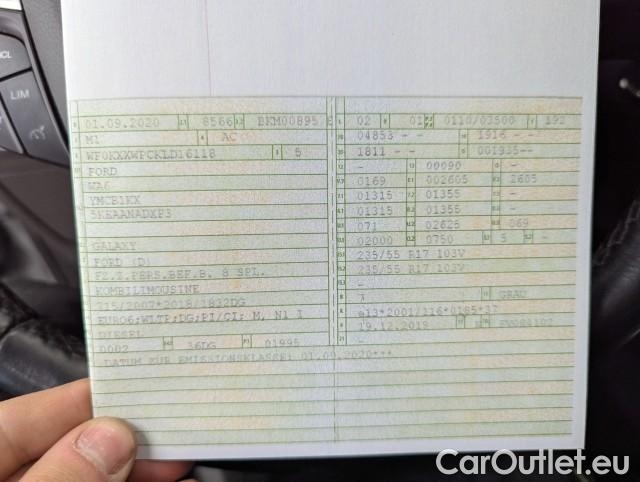 LIM
01.09.2020 8566 BKM00895
M1 AC
5
FORD
WA6
YMCB1KX
5KEAANADXP3
GALAXY
FORD (D)
FZ.Z.PERS.BEF.B. 8 SPL.
KOMBILIMOUSINE
715/2007*2018/1832DG
EURO6;WLTP;DG;PI/CI; M, N1 I
DIESEL
0002 36DG 01995
DATUM ZUR EMISSIONSKLASSE: 01.09.2020***
02 01 0110/03500 192
04853 - - 1916 - -
1811 - - 001935--
- 00090 -
0169 002605 2605
01315 01355 -
01315 01355 -
071 02625 069
02000 0750 5 -
235/55 R17 103V
235/55 R17 103V
-
GRAU
e13*2001/116*0185*37
19.12.2019
-
CarOutlet.eu